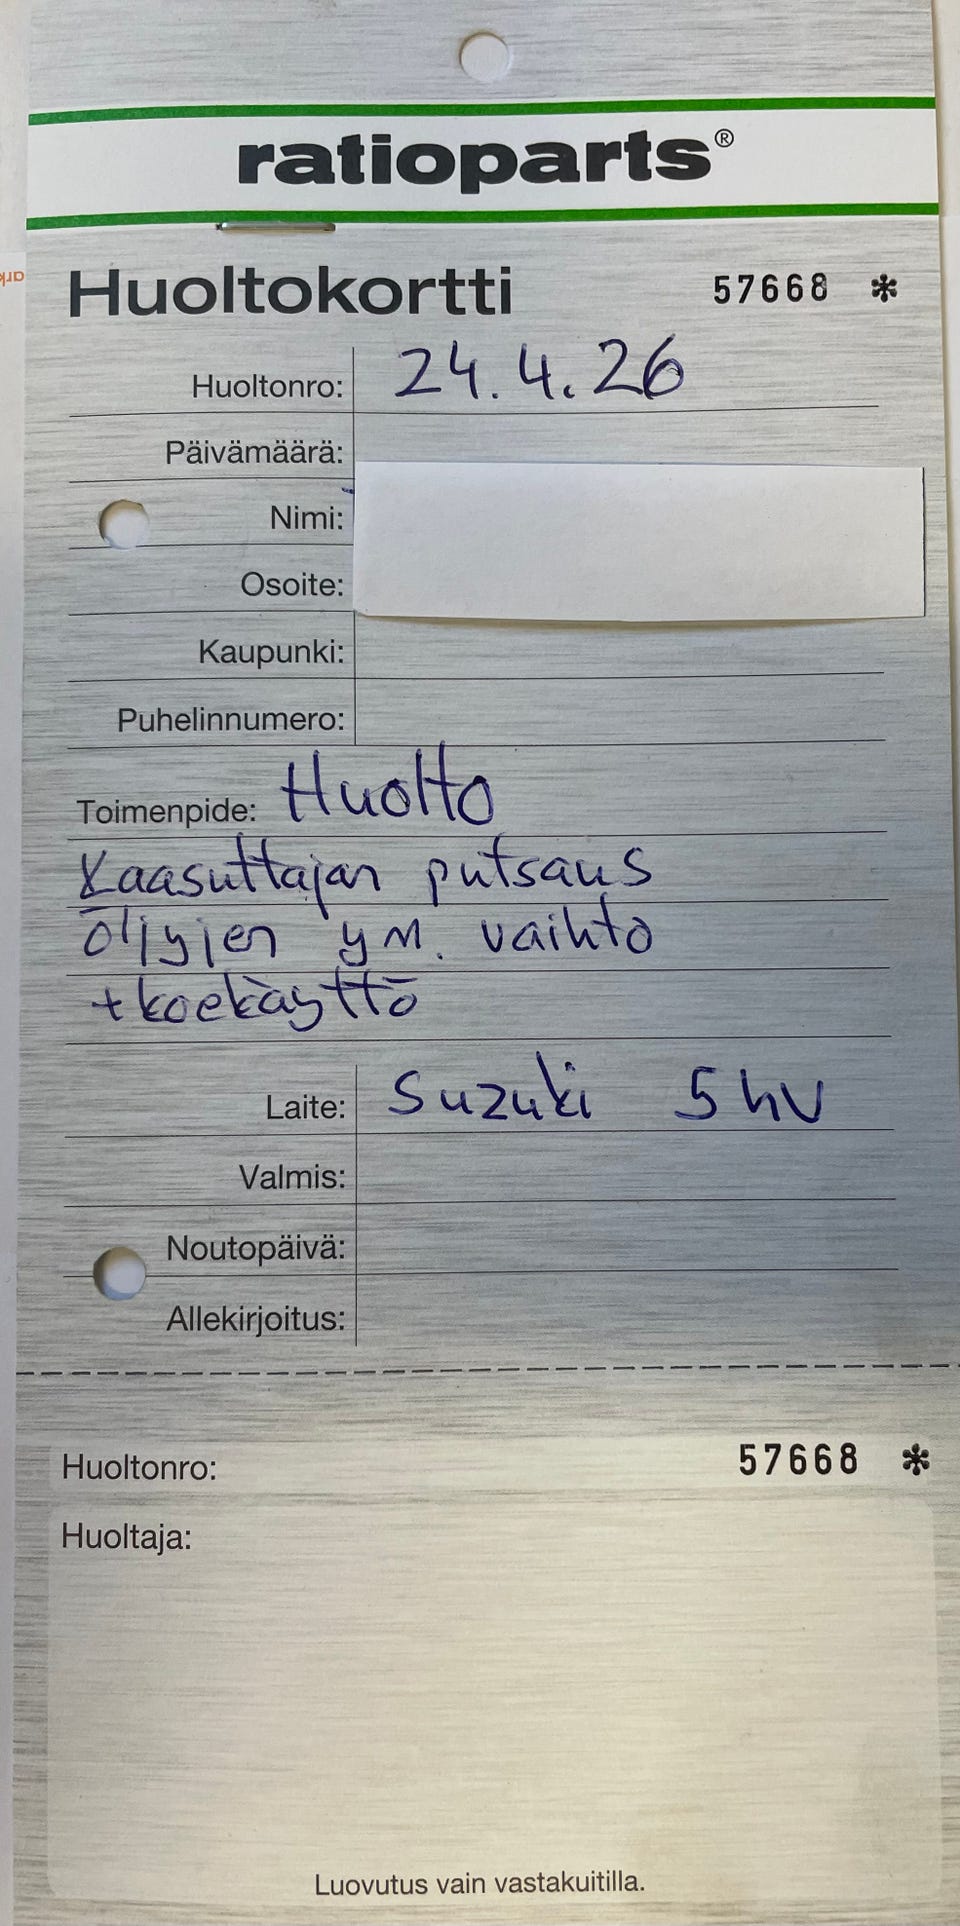 ratioparts®
Huoltokortti 57668 *
Huoltonro: 24.4.26
Päivämäärä:
Nimi:
Osoite:
Kaupunki:
Puhelinnumero:
Toimenpide: Huolto
Kaasuttajan putsaus
öljyjen ym. vaihto
+ koekäyttö
Laite: Suzuki 5 hv
Valmis:
Noutopäivä:
Allekirjoitus:
Huoltonro: 57668 *
Huoltaja:
Luovutus vain vastakuitilla.